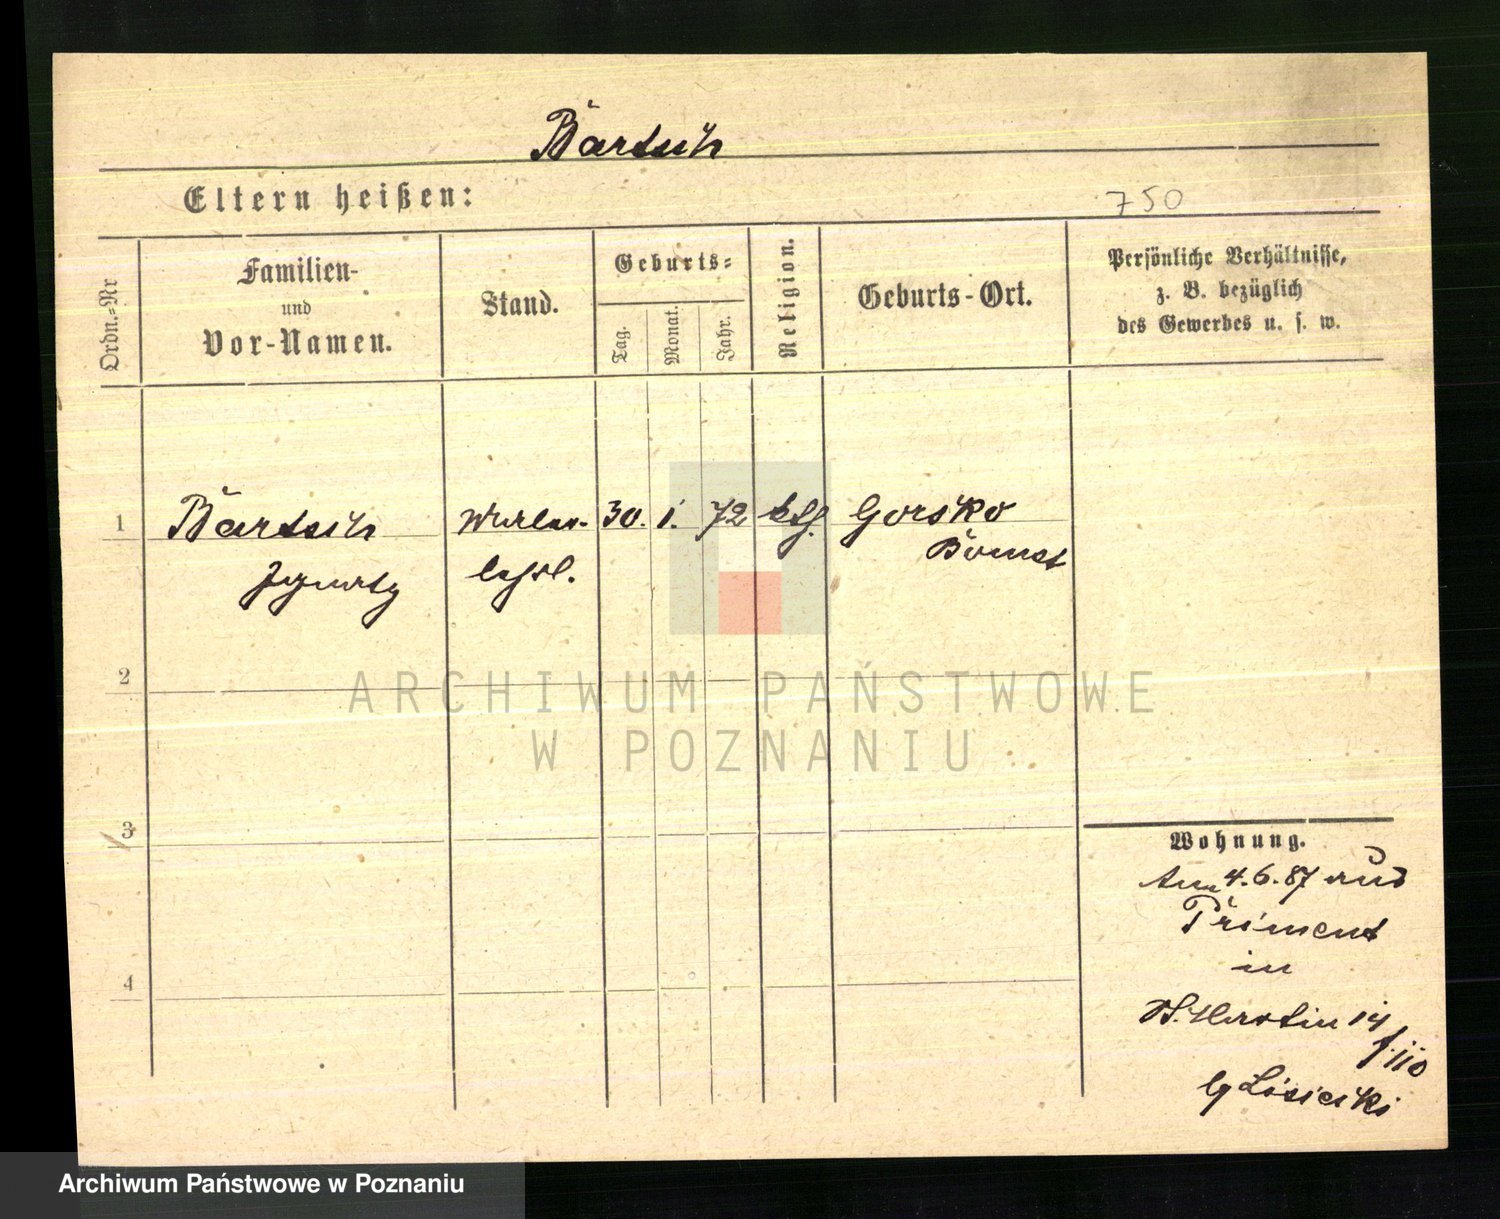 Bartsch
Eltern heißen:
750
Ordn.-Nr
Familien-
und
Vor-Namen.
Stand.
Geburts-
Tag.
Monat.
Jahr.
Religion.
Geburts-Ort.
Persönliche Verhältnisse,
z. B. bezüglich
des Gewerbes u. s. w.
1
Bartsch
Ignatz
Maler-
lehrl.
30.
1.
72
kth.
Gorsko
Bomst
2
ARCHIWUM PAŃSTWOWE
W POZNANIU
3
4
Wohnung.
4.6.87 aus
Priment
in
St. Martin 14
b/ Lisiecki
Archiwum Państwowe w Poznaniu